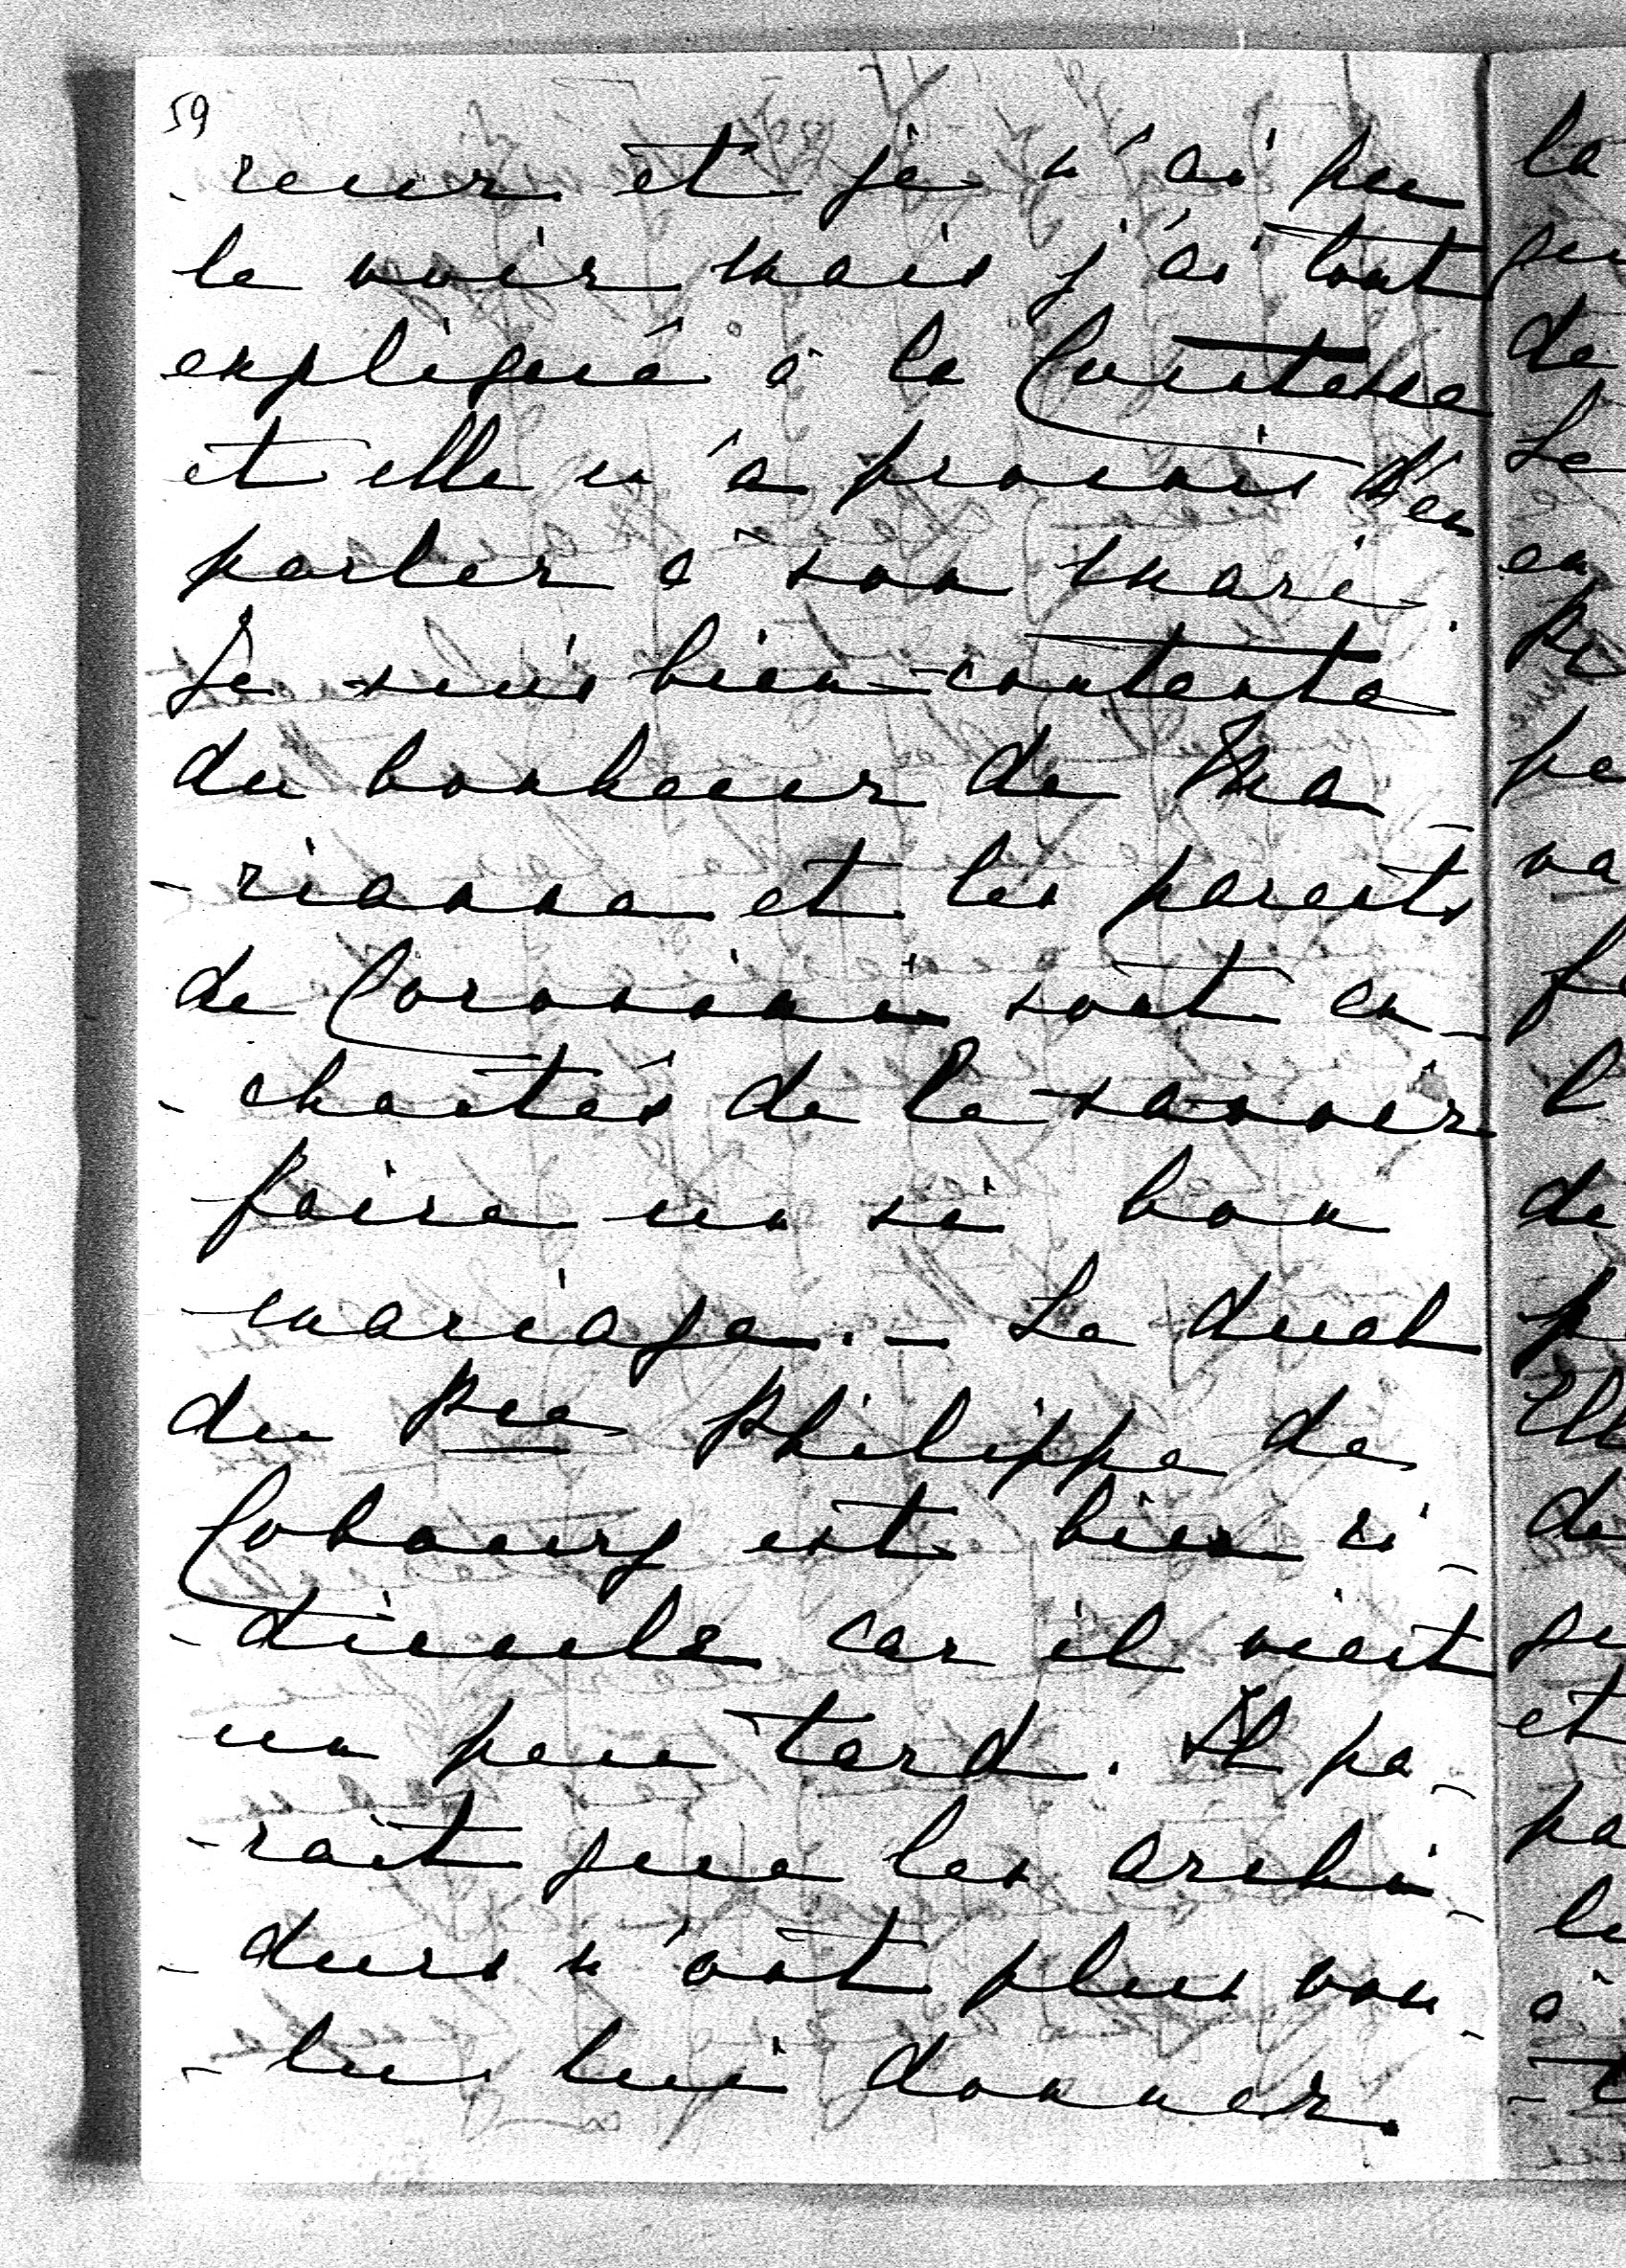 59
- reur et je n'ai pu
le voir mais j'ai tout
expliqué à la Comtesse
et elle m'a promis d'en
parler à son mari.
Je suis bien contente
du bonheur de Ma-
- rianna et les parents
de Coronini sont en-
- chantés de le savoir
faire un si bon
mariage. - Le duel
du Pce Philippe de
Cobourg est bien ri-
- dicule car il vient
un peu tard. Il pa-
- rait que les archi-
- ducs n'ont plus vou-
- lu lui donner